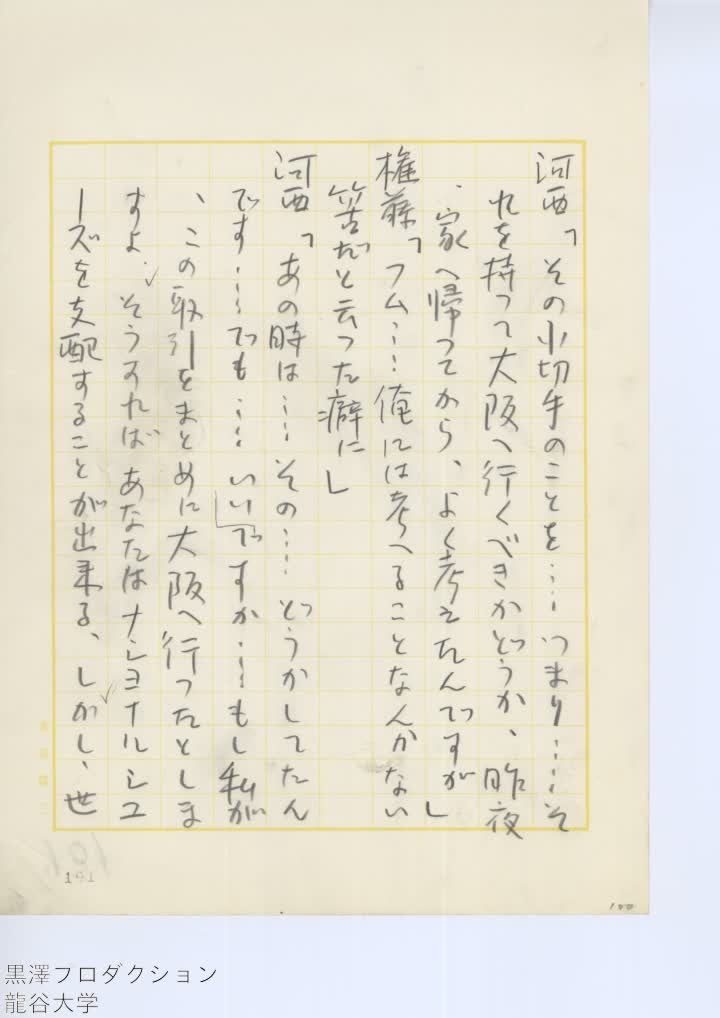 河西「その小切手のことを…つまり…そ
れを持って大阪へ行くべきかどうか、昨夜
、家へ帰ってから、よく考えたんですが」
権藤「フム…俺には考へることなんかない
筈だと云った癖に」
河西「あの時は…その…どうかしてたん
です…でも…いいですか…もし私が
、この取引をまとめに大阪へ行ったとしま
すよ、そうすれば あなたはナショナルシュ
ーズを支配することが出来る、しかし、世
191
黒澤プロダクション
龍谷大学